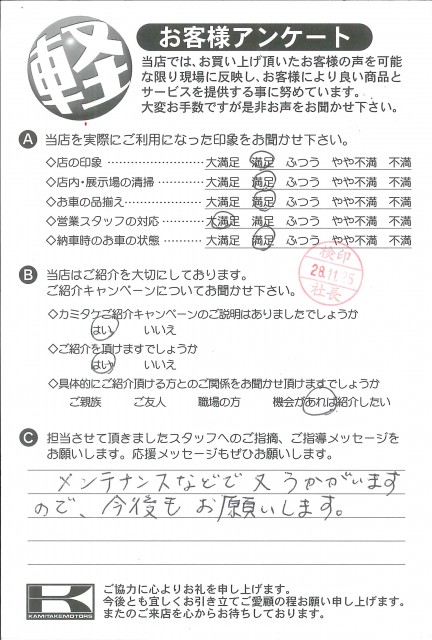 軽
お客様アンケート
当店では、お買い上げ頂いたお客様の声を可能
な限り現場に反映し、お客様により良い商品と
サービスを提供する事に努めています。
大変お手数ですが是非お声をお聞かせ下さい。
A 当店を実際にご利用になった印象をお聞かせ下さい。
◇店の印象 ………………… 大満足 満足 ふつう やや不満 不満
◇店内・展示場の清掃 ………… 大満足 満足 ふつう やや不満 不満
◇お車の品揃え ……………… 大満足 満足 ふつう やや不満 不満
◇営業スタッフの対応 ………… 大満足 満足 ふつう やや不満 不満
◇納車時のお車の状態 ………… 大満足 満足 ふつう やや不満 不満
検印
28.11.25
社長
B 当店はご紹介を大切にしております。
ご紹介キャンペーンについてお聞かせ下さい。
◇カミタケご紹介キャンペーンのご説明はありましたでしょうか
はい いいえ
◇ご紹介を頂けますでしょうか
はい いいえ
◇具体的にご紹介頂ける方とのご関係をお聞かせ頂けますでしょうか
ご親族 ご友人 職場の方 機会があれば紹介したい
C 担当させて頂きましたスタッフへのご指摘、ご指導メッセージを
お願いします。応援メッセージもぜひお願いします。
メンテナンスなどで又うかがいます
ので、今後もお願いします。
KAMITAKEMOTORS
ご協力に心よりお礼を申し上げます。
今後とも宜しくお引き立てご愛顧の程お願い申し上げます。
またのご来店を心からお待ちしております。